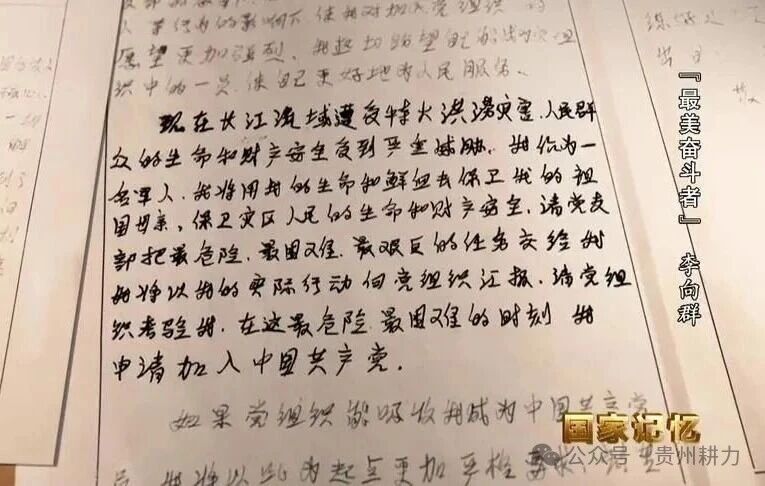 愿望更加强烈。我迫切盼望能够成为党组
织中的一员,使自己更好地为人民服务。
现在长江流域遭受特大洪涝灾害,人民群
众的生命和财产安全受到严重威胁。我作为一
名军人,我将用我的生命和鲜血去保卫我的祖
国母亲,保卫灾区人民的生命和财产安全,请党支
部把最危险、最困难、最艰巨的任务交给我
我将以我的实际行动向党组织汇报,请党组
织考验我,在这最危险、最困难的时刻 我
申请加入中国共产党。
如果党组织能吸收我成为中国共产党
员 我将以此为起点更加严格要求
『最美奋斗者』 李向群
国家记忆
公众号 贵州耕力